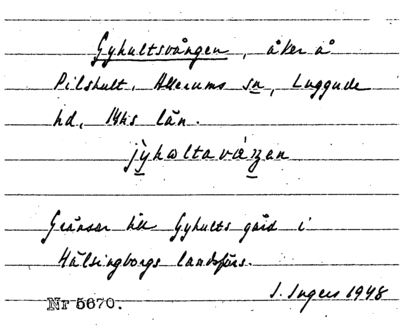 Gyhultsvången, åker å
Pilshult, Allerums sn, Luggude
hd, Mhs län.
jyhaltaváŋan
Gränsar till Gyhults gård i
Hälsingborgs landsförs.
I. Ingers 1948
Nr 5670.